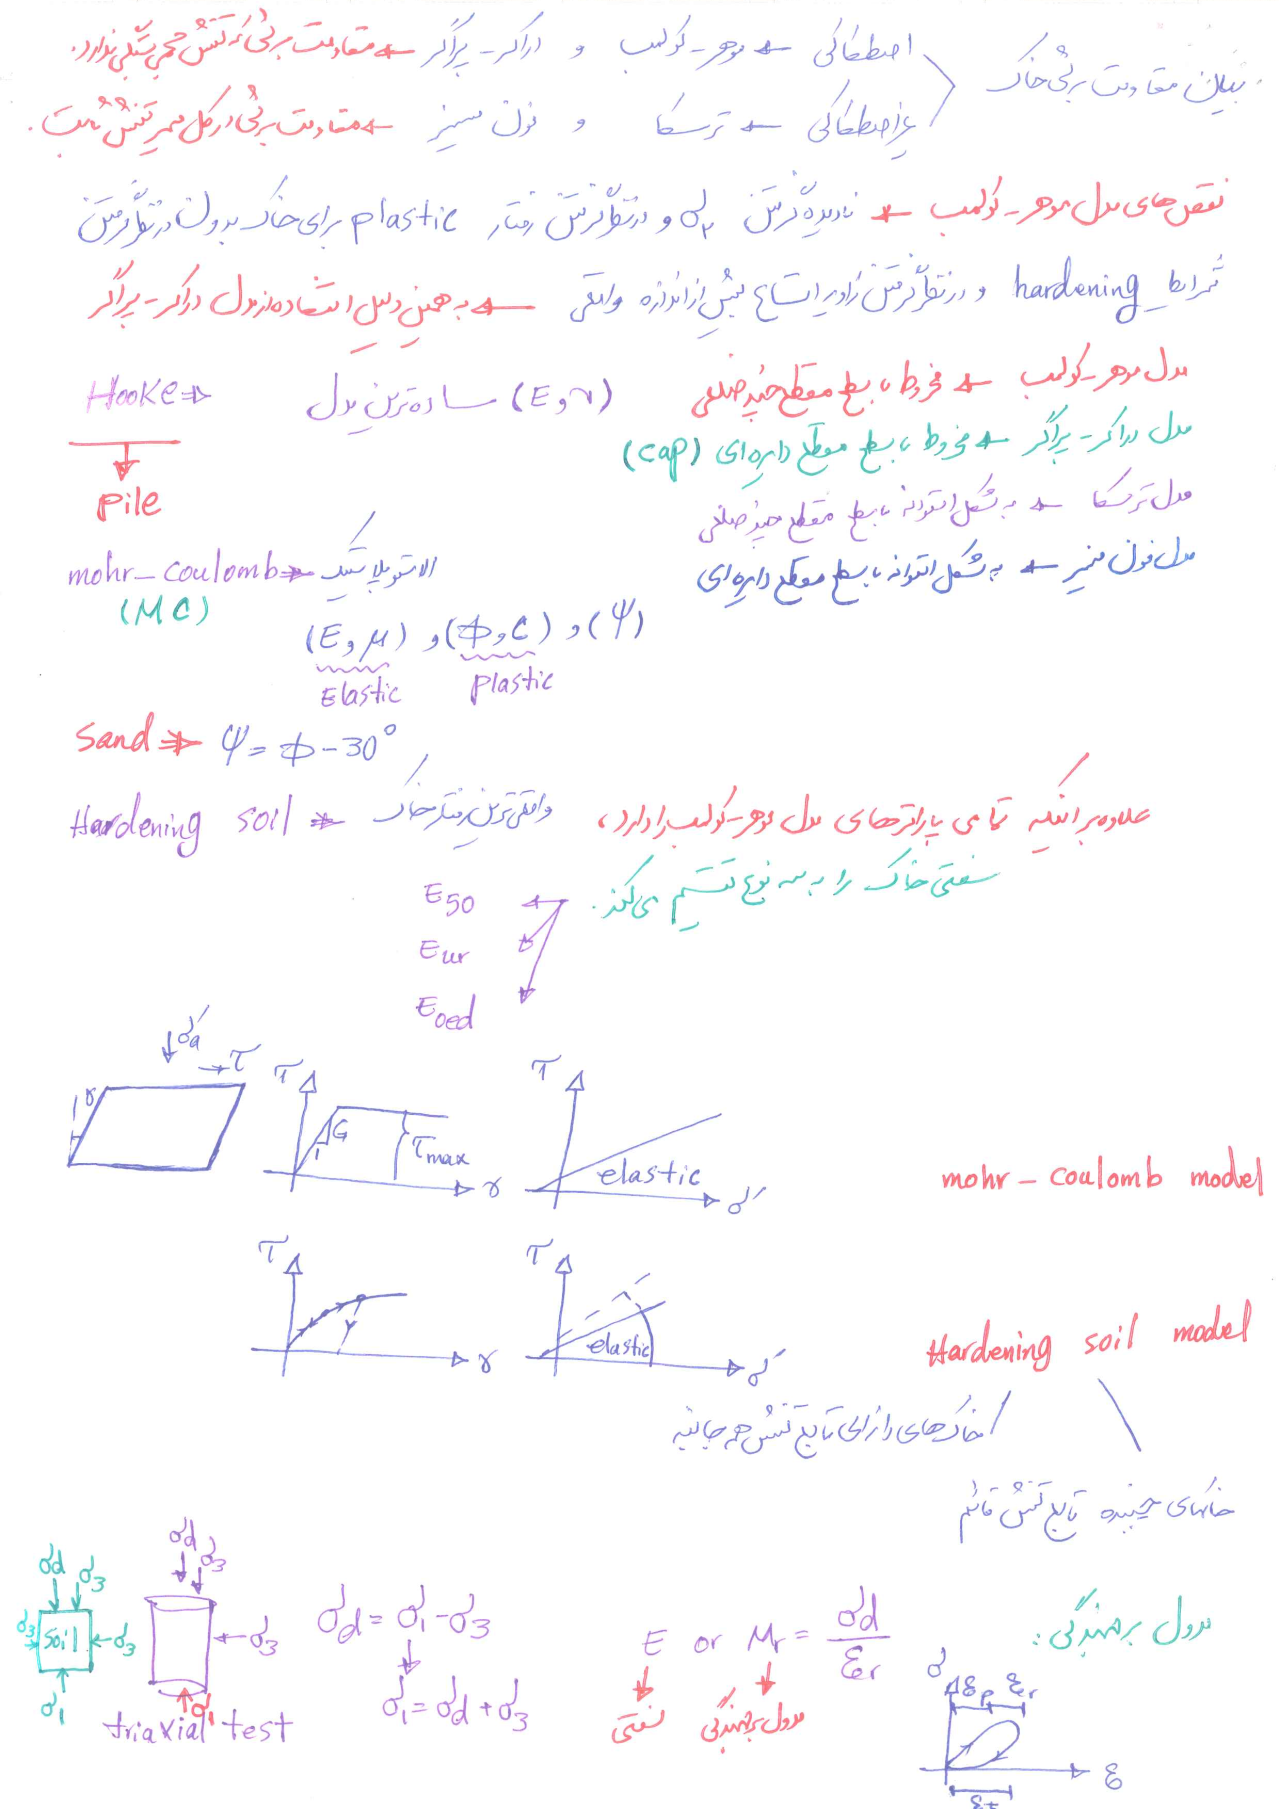 بیان مقاومت برشی خاک
اصطکاکی ← موهر-کولمب و دراکر-پراگر ← مقاومت برشی به تنش حجمی بستگی ندارد.
غیراصطکاکی ← ترسکا و فون میسز ← مقاومت برشی در کل مسیر تنش ثابت.
نقص‌های مدل موهر-کولمب ← نادیده گرفتن σ2 و در نظر گرفتن رفتار plastic برای خاک بدون در نظر گرفتن
شرایط hardening و در نظر گرفتن زاویه اتساع بیش از اندازه واقعی ← به همین دلیل استفاده از مدل دراکر-پراگر
مدل موهر-کولمب ← مخروط با سطح مقطع چند ضلعی
مدل دراکر-پراگر ← مخروط با سطح مقطع دایره‌ای (cap)
مدل ترسکا ← به شکل استوانه با سطح مقطع چند ضلعی
مدل فون میسز ← به شکل استوانه با سطح مقطع دایره‌ای
Hooke ⇒ ساده‌ترین مدل (E و ν)
pile
mohr-coulomb → الاستوپلاستیک
(MC)
(E و μ) و (Φ و C) و (Ψ)
Elastic plastic
Sand ⇒ Ψ = Φ - 30°
Hardening soil ⇒ واقعی‌ترین رفتار خاک
علاوه بر اینکه تمامی پارامترهای مدل موهر-کولمب را دارد،
سختی خاک را به سه نوع تقسیم می‌کند.
E50
Eur
Eoed
σ'a
τ
γ
τ
G
1
τmax
γ
τ
elastic
σ'
mohr-coulomb model
τ
γ
τ
elastic
σ'
Hardening soil model
خاک‌های دانه‌ای تابع تنش همه جانبه
خاکهای چسبنده تابع تنش قائم
σd σ3
σ3 soil σ3
σ1
σd σ3
σ3
σ1
triaxial test
σd = σ1 - σ3
σ1 = σd + σ3
E or Mr = σd / εr
سختی
مدول برجهندگی
مدول برجهندگی:
σ
εp εr
ε
εt